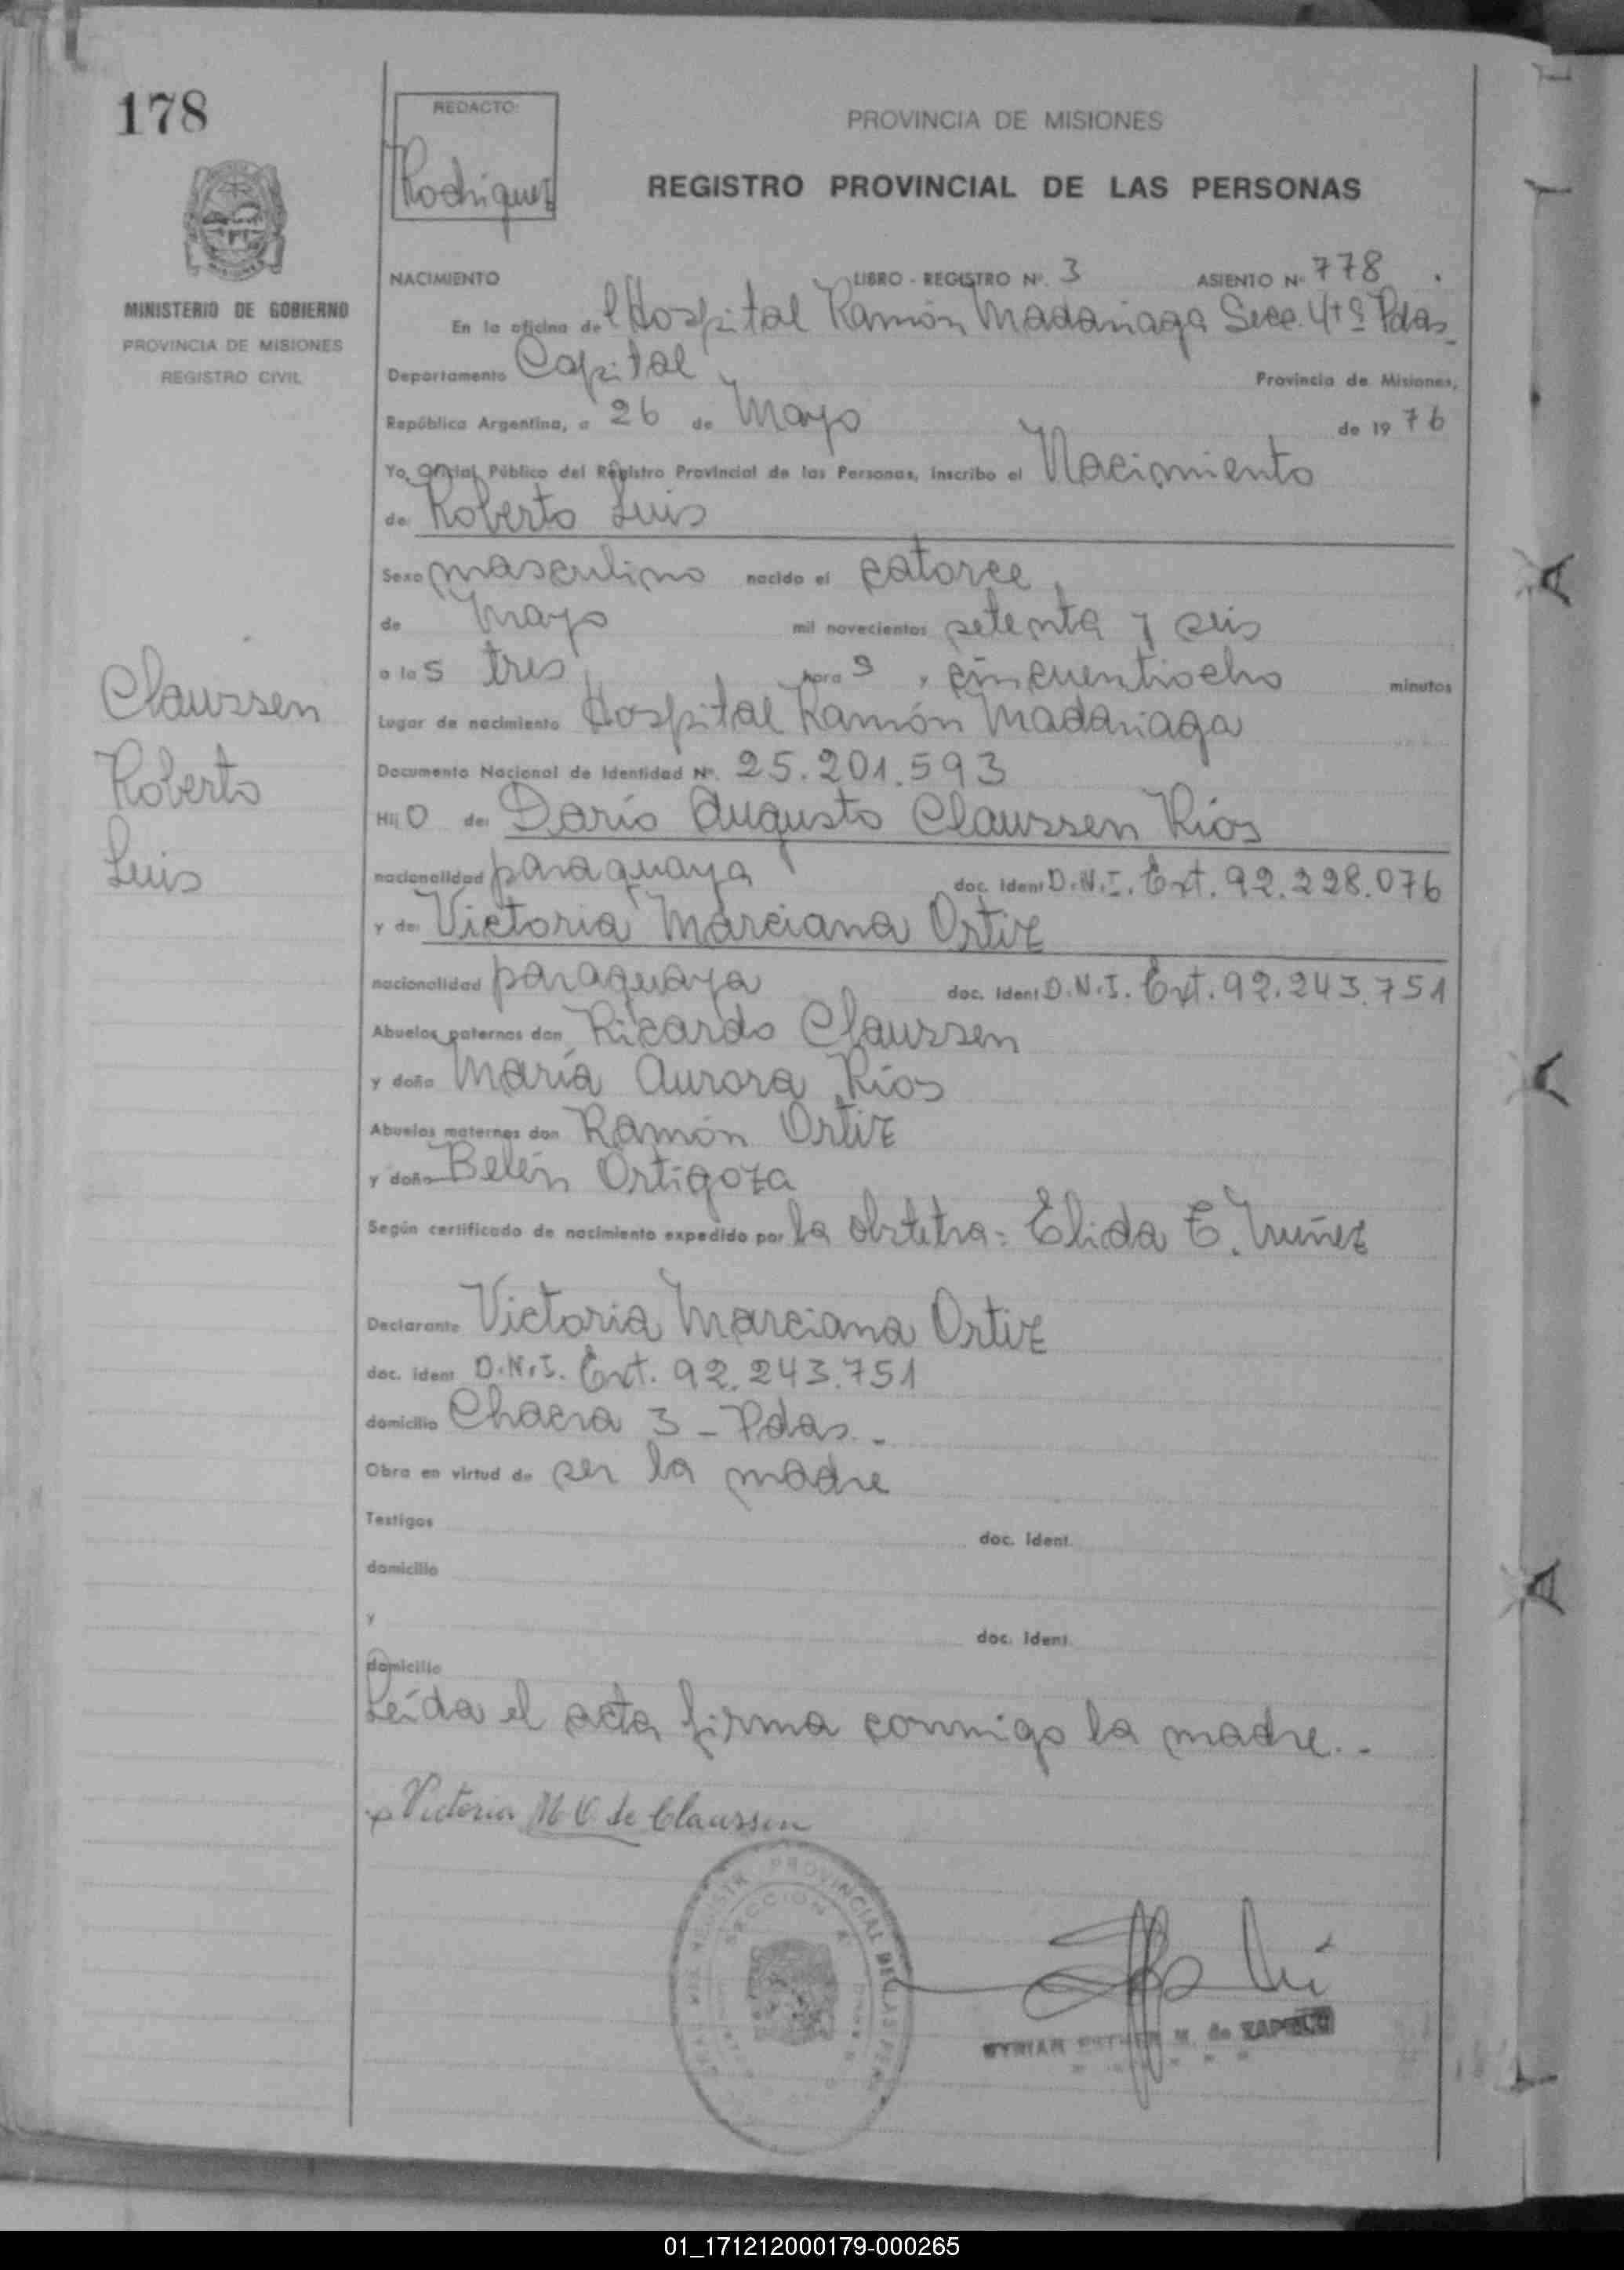 178
REDACTO:
Rodriguez
PROVINCIA DE MISIONES
REGISTRO PROVINCIAL DE LAS PERSONAS
MINISTERIO DE GOBIERNO
PROVINCIA DE MISIONES
REGISTRO CIVIL
NACIMIENTO LIBRO - REGISTRO Nº. 3 ASIENTO Nº 778
En la oficina del Hospital Ramón Madariaga Secc. 4tª Pdas
Departamento Capital Provincia de Misiones,
República Argentina, a 26 de Mayo de 1976
Yo, Oficial Público del Registro Provincial de las Personas, inscribo el Nacimiento
de: Roberto Luis
Sexo masculino nacido el catorce
de Mayo mil novecientos setenta y seis
a las tres horas, cincuentiocho minutos
Lugar de nacimiento Hospital Ramón Madariaga
Documento Nacional de Identidad Nº. 25.201.593
Hijo de: Darío Augusto Claussen Ríos
nacionalidad paraguaya doc. ident D.N.I. Ext. 92.228.076
y de: Victoria Marciana Ortiz
nacionalidad paraguaya doc. ident D.N.I. Ext. 92.243.751
Abuelos paternos don Ricardo Claussen
y doña María Aurora Ríos
Abuelos maternos don Ramón Ortiz
y doña Belén Ortigoza
Según certificado de nacimiento expedido por la obstetra: Elida E. Nuñez
Declarante Victoria Marciana Ortiz
doc. ident D.N.I. Ext. 92.243.751
domicilio Chacra 3 - Pdas. -
Obra en virtud de ser la madre
Testigos doc. ident.
domicilio
y doc. ident.
domicilio
Leída el acta firma conmigo la madre. -
Victoria M O de Claussen
Claussen
Roberto
Luis
REGISTR PROVINCIAL DE LAS PER
SECCION
MYRIAM ESTHER M. de
01_171212000179-000265